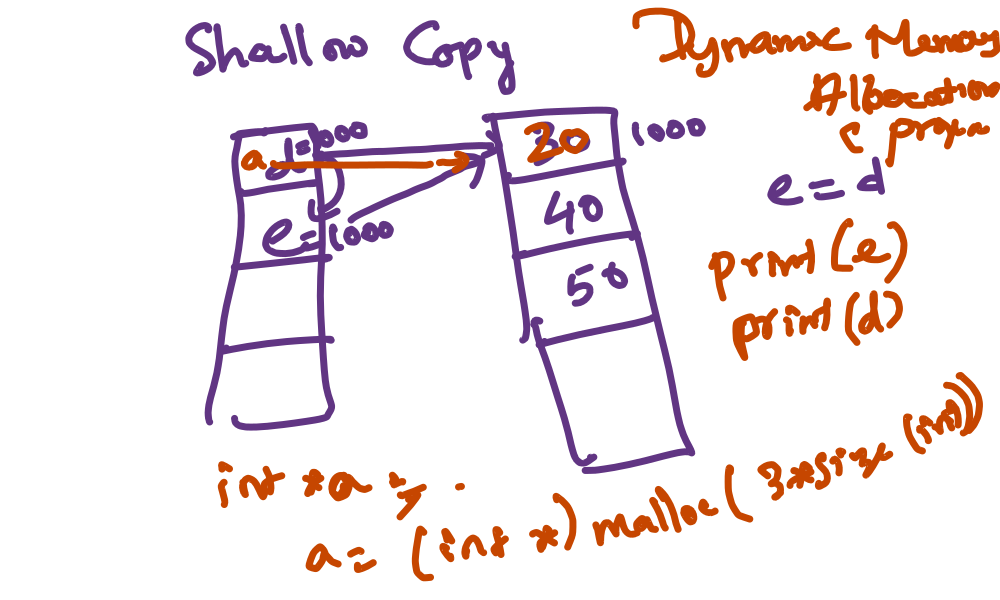 Shallow Copy
Dynamic Memory
Allocation
C program
a d=1000
e=1000
20
1000
40
50
e=d
print(e)
print(d)
int *a ;
a= (int *) malloc( 3*size (int))